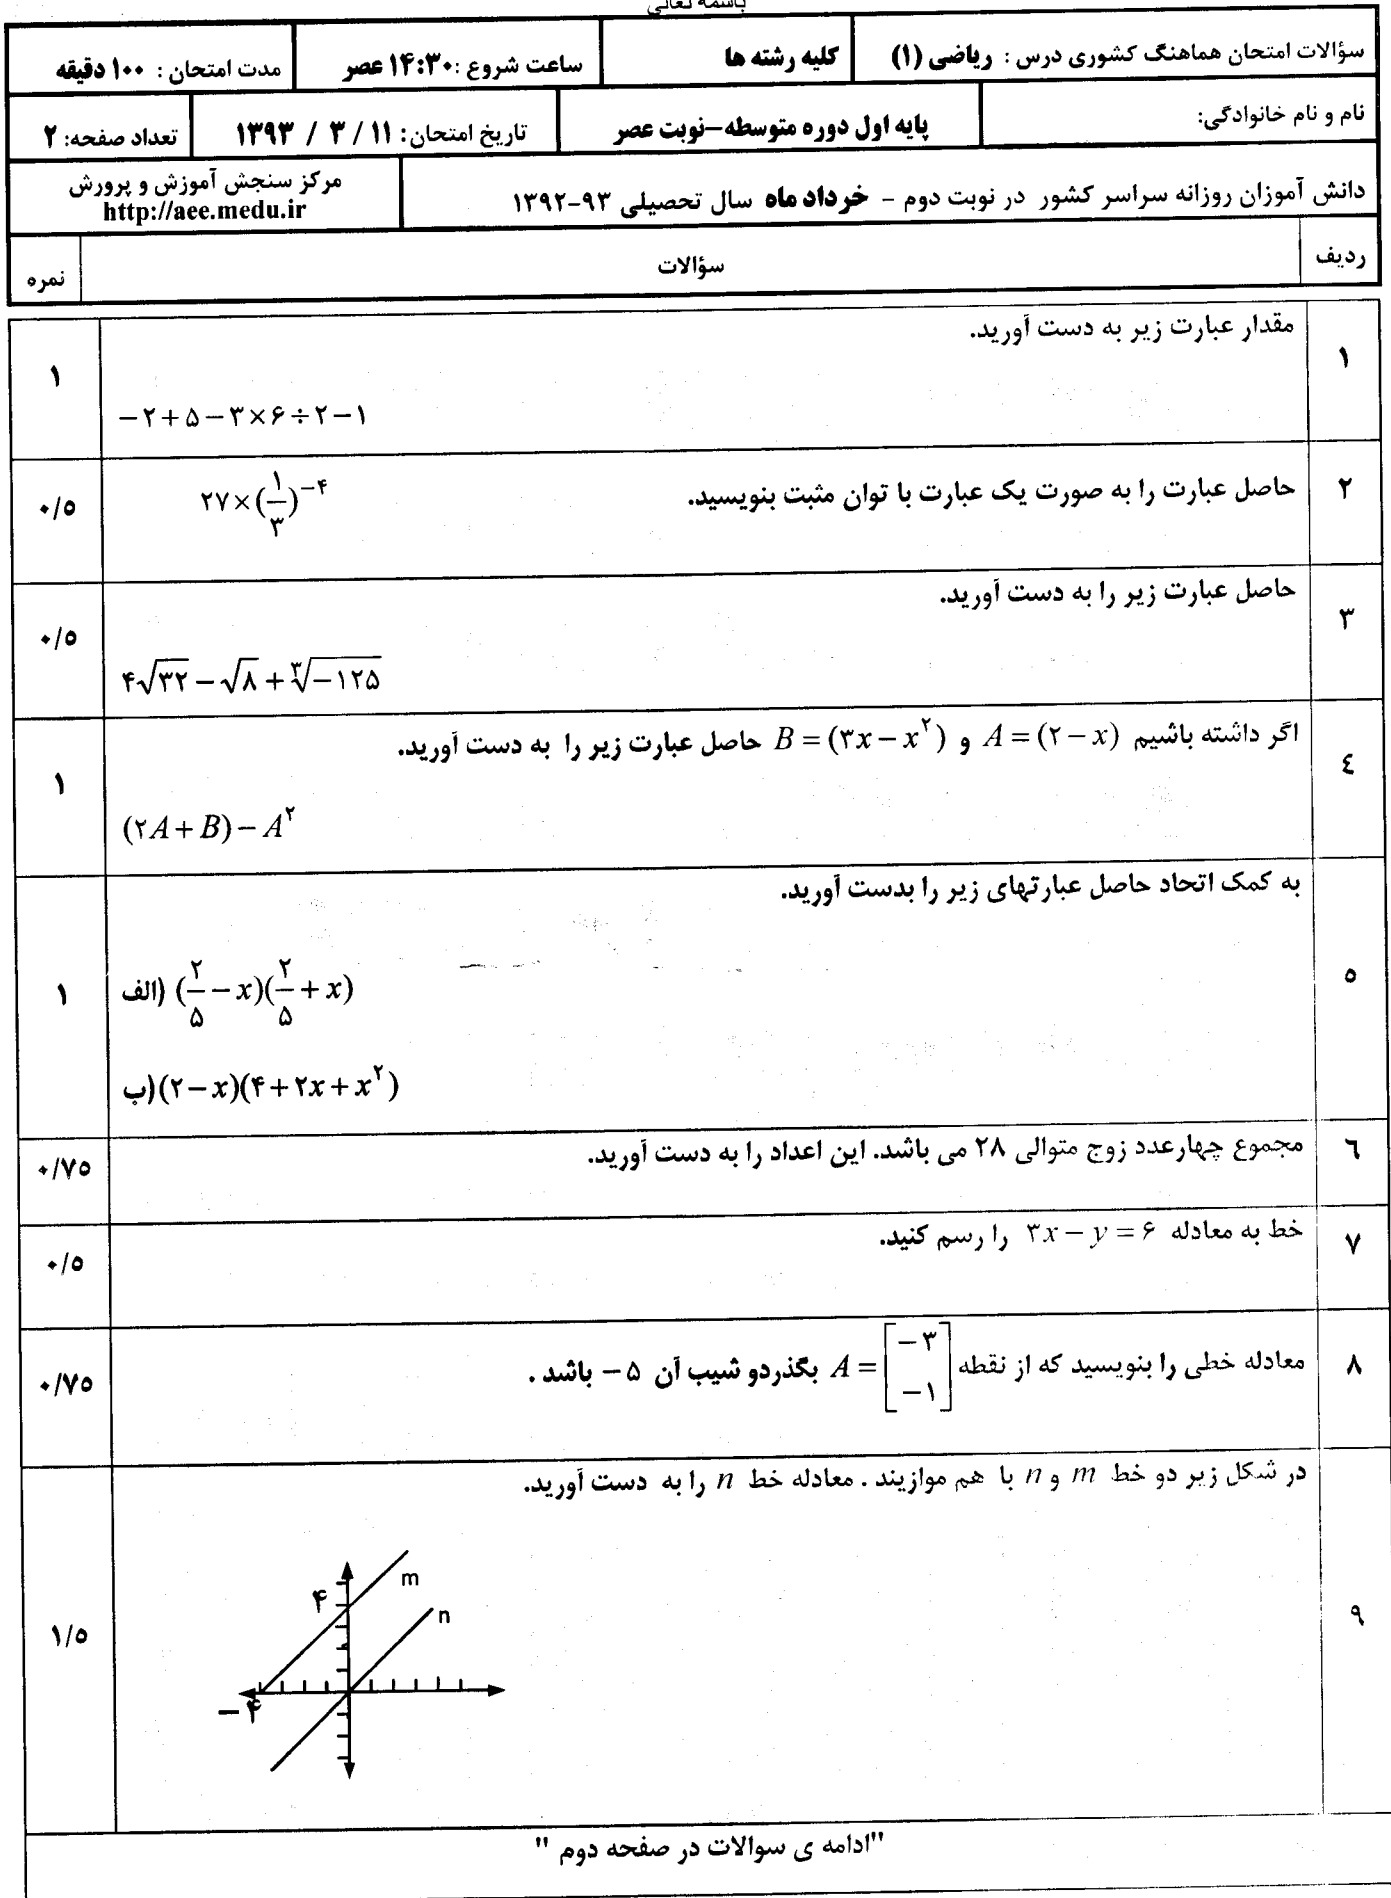 باسمه تعالی
سؤالات امتحان هماهنگ کشوری درس : ریاضی (۱)
کلیه رشته ها
ساعت شروع :۱۴:۳۰ عصر
مدت امتحان : ۱۰۰ دقیقه
نام و نام خانوادگی:
پایه اول دوره متوسطه–نوبت عصر
تاریخ امتحان: ۱۱ / ۳ / ۱۳۹۳
تعداد صفحه: ۲
دانش آموزان روزانه سراسر کشور در نوبت دوم - خرداد ماه سال تحصیلی ۹۳-۱۳۹۲
مرکز سنجش آموزش و پرورش
http://aee.medu.ir
ردیف
سؤالات
نمره
۱
مقدار عبارت زیر به دست آورید.
−۲+۵−۳×۶÷۲−۱
۱
۲
حاصل عبارت را به صورت یک عبارت با توان مثبت بنویسید.
۲۷×(۱/۳)^−۴
۰/۵
۳
حاصل عبارت زیر را به دست آورید.
۴√۳۲ − √۸ + ³√−۱۲۵
۰/۵
٤
اگر داشته باشیم A = (۲ − x) و B = (۳x − x²) حاصل عبارت زیر را به دست آورید.
(۲A + B) − A²
۱
۵
به کمک اتحاد حاصل عبارتهای زیر را بدست آورید.
الف) (۲/۵ − x)(۲/۵ + x)
ب) (۲ − x)(۴ + ۲x + x²)
۱
٦
مجموع چهارعدد زوج متوالی ۲۸ می باشد. این اعداد را به دست آورید.
۰/۷۵
۷
خط به معادله ۳x − y = ۶ را رسم کنید.
۰/۵
۸
معادله خطی را بنویسید که از نقطه A = [−۳ −۱] بگذردو شیب آن ۵ − باشد .
۰/۷۵
۹
در شکل زیر دو خط m و n با هم موازیند . معادله خط n را به دست آورید.
m
۴
n
−۴
۱/۵
"ادامه ی سوالات در صفحه دوم "